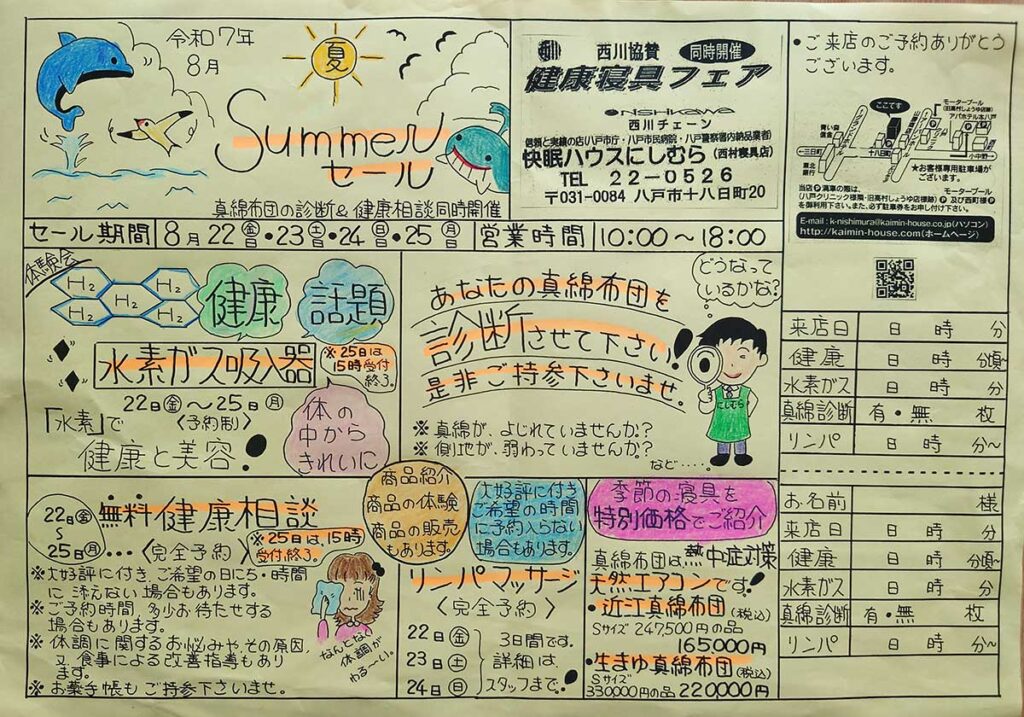 令和7年
8月
夏
Summer
セール
真綿布団の診断&健康相談同時開催
西川協賛 同時開催
健康寝具フェア
nishikawa
西川チェーン
信頼と実績の店(八戸市庁・八戸市民病院・八戸警察署内納品業者)
快眠ハウスにしむら(西村寝具店)
TEL 22-0526
〒031-0084 八戸市十八日町20
・ご来店のご予約ありがとう
ございます。
ここです
モータープール
(旧高村しょうゆ店様)
アパホテル本八戸
青い森
信金
三日町
十八日町
小中野
東北
銀行
★お客様専用駐車場が
ございます。
当店P満車の際は、
モータープールP
(八戸クリニック様隣・旧高村しょうゆ店様跡)及び西町様P
を御利用下さい。また、必ず駐車券をお申し付け下さい。
E-mail:k-nishimura@kaimin-house.co.jp(パソコン)
http://kaimin-house.com(ホームページ)
セール期間 8月22㊎・23㊏・24㊐・25㊊ 営業時間 10:00〜18:00
体験会
H₂
H₂
H₂
H₂
H₂
健康
話題
水素ガス吸入器
※25日は
15時受付
終了。
22日㊎〜25日㊊
〈予約制〉
「水素」で
健康と美容!
体の
中から
きれいに
あなたの真綿布団を
診断させて下さい!
是非ご持参下さいませ。
※真綿が、よじれていませんか?
※側地が、弱わっていませんか?
など....
どうなって
いるかな?
にしむら
22日㊎
〜
25日㊊
無料健康相談
…〈完全予約〉
※25日は、15時
受付終了。
※大好評に付き、ご希望の日にち・時間
に添えない場合もあります。
※ご予約時間、多少お待たせする
場合もあります。
※体調に関するお悩みや、その原因、
又、食事による改善指導もあり
ます。
※お薬手帳もご持参下さいませ。
なんかな〜
体調が
わる〜い。
商品紹介
商品の体験
商品の販売
もあります。
大好評に付き
ご希望の時間
に予約入らない
場合もあります。
リンパマッサージ
〈完全予約〉
22日㊎
23日㊏
24日㊐
3日間です。
詳細は、
スタッフまで!
季節の寝具を
特別価格でご紹介
真綿布団は熱中症対策
天然エアコンです!
・近江真綿布団(税込)
Sサイズ 247,500円の品
165,000円
・生まゆ真綿布団(税込)
Sサイズ
330,000円の品 220,000円
来店日 日 時 分
健康 日 時 分頃
水素ガス 日 時 分
真綿診断 有・無 枚
リンパ 日 時 分〜
お名前 様
来店日 日 時 分
健康 日 時 分頃〜
水素ガス 日 時 分
真綿診断 有・無 枚
リンパ 日 時 分〜